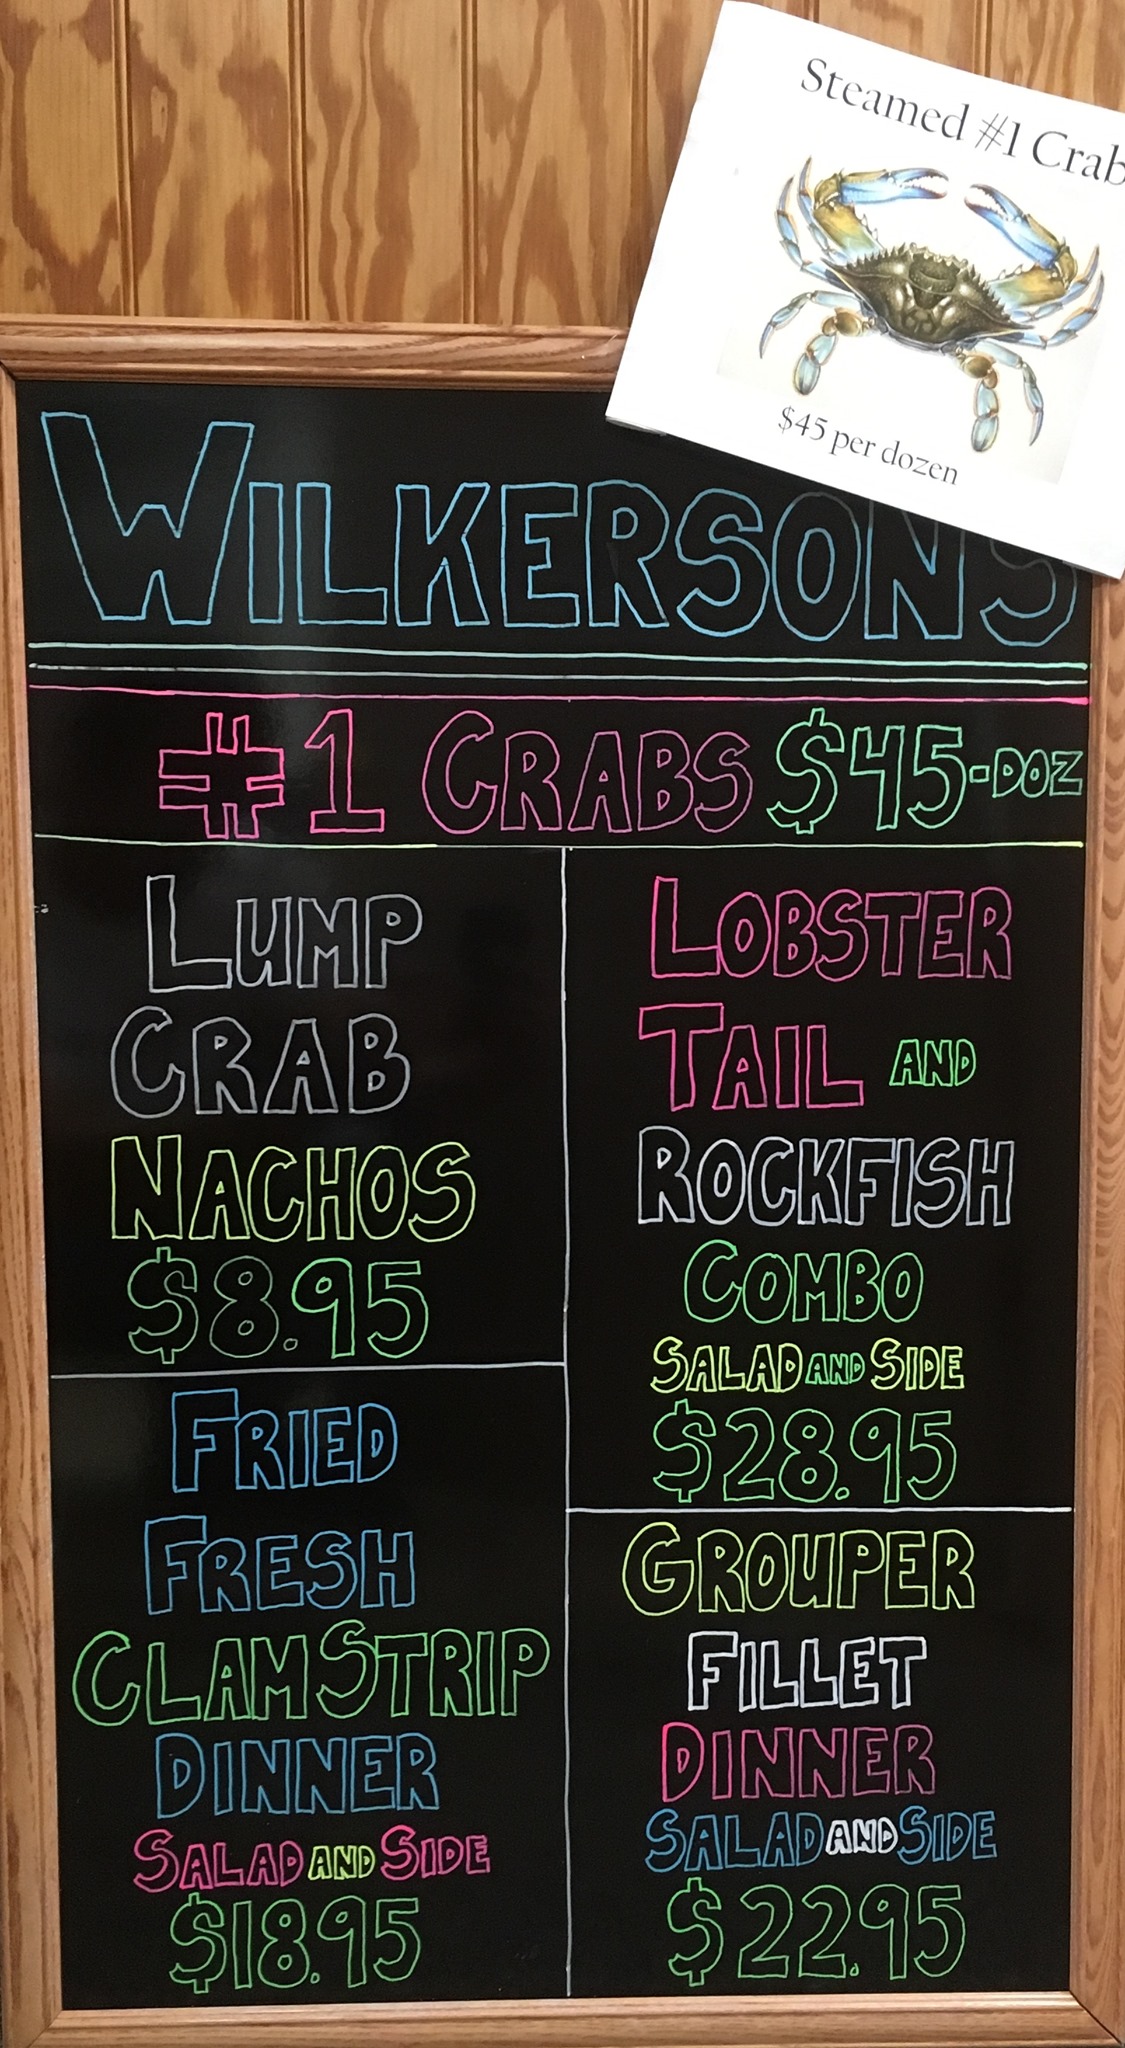 Steamed #1 Crab
$45 per dozen
WILKERSONS
#1 CRABS $45-DOZ
LUMP
CRAB
NACHOS
$8.95
FRIED
FRESH
CLAM STRIP
DINNER
SALAD AND SIDE
$18.95
LOBSTER
TAIL AND
ROCKFISH
COMBO
SALAD AND SIDE
$28.95
GROUPER
FILLET
DINNER
SALAD AND SIDE
$22.95